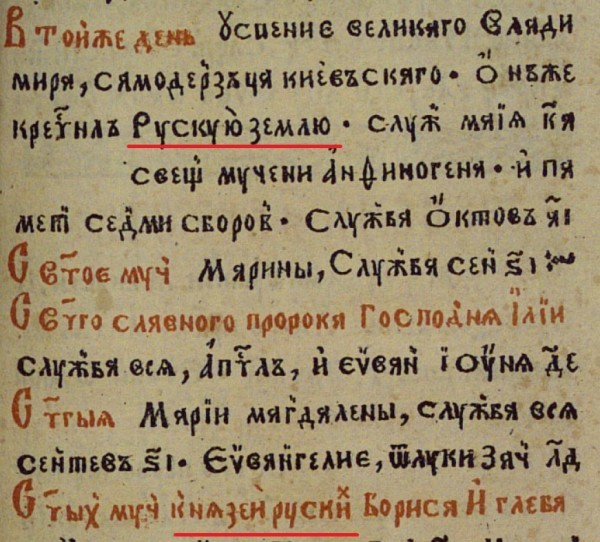 В тои҆же день Успение великаго Влади
мира, самоде́рзъца кие́въскаго· О҆ не́же
крети́лъ Рускую̀ землю · слу́ж маїя к҃а
свещ҃ мучени Анфиногеня · и҆ па
меті се́дми сборов · Служба О҆ктовъ а҃і
Све҃тое муч Марины, Служба сен s҃і
Све҃того славного пророка Господня І҆лїи
служба вся, А҆птлъ, и҆ еѵ҆ван їоу́ня д҃е
С҃тгыя Марїи магдалены, служба вся
сен́тевъ s҃і· Еѵ҆ван́гелие, ѿлуки зач л҃д
С҃тых муч кня́зеи руских Бориса И҆ глеба